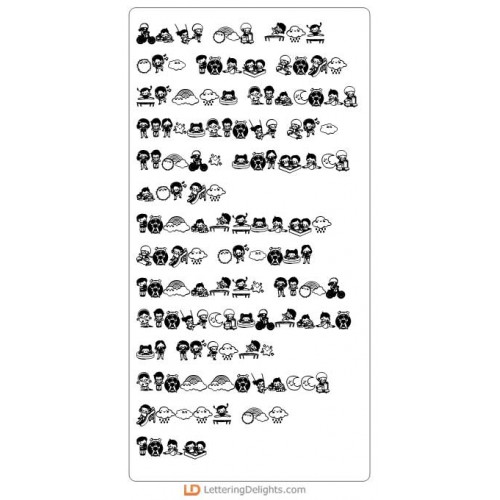 LD LetteringDelights.com